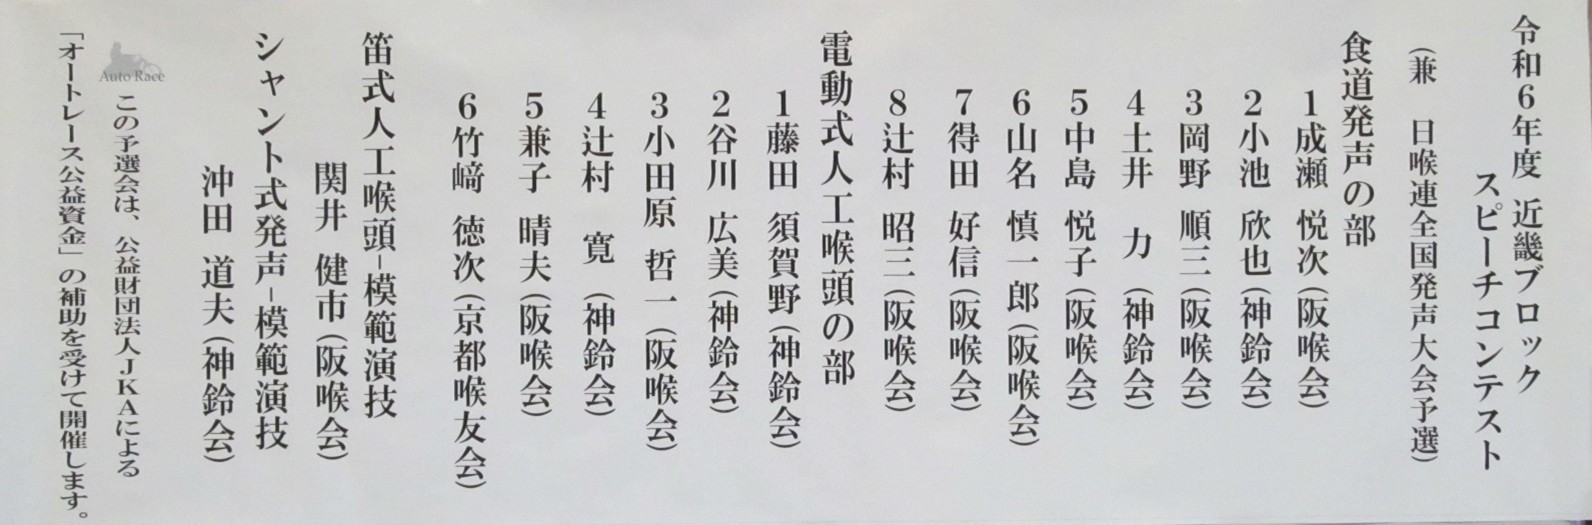 令和6年度 近畿ブロック
スピーチコンテスト
(兼 日喉連全国発声大会予選)
食道発声の部
1成瀬 悦次(阪喉会)
2小池 欣也(神鈴会)
3岡野 順三(阪喉会)
4土井 力(神鈴会)
5中島 悦子(阪喉会)
6山名 慎一郎(阪喉会)
7得田 好信(阪喉会)
8辻村 昭三(阪喉会)
電動式人工喉頭の部
1藤田 須賀野(神鈴会)
2谷川 広美(神鈴会)
3小田原 哲一(阪喉会)
4辻村 寛(神鈴会)
5兼子 晴夫(阪喉会)
6竹﨑 徳次(京都喉友会)
笛式人工喉頭-模範演技
関井 健市(阪喉会)
シャント式発声-模範演技
沖田 道夫(神鈴会)
Auto Race
この予選会は、公益財団法人JKAによる
「オートレース公益資金」の補助を受けて開催します。